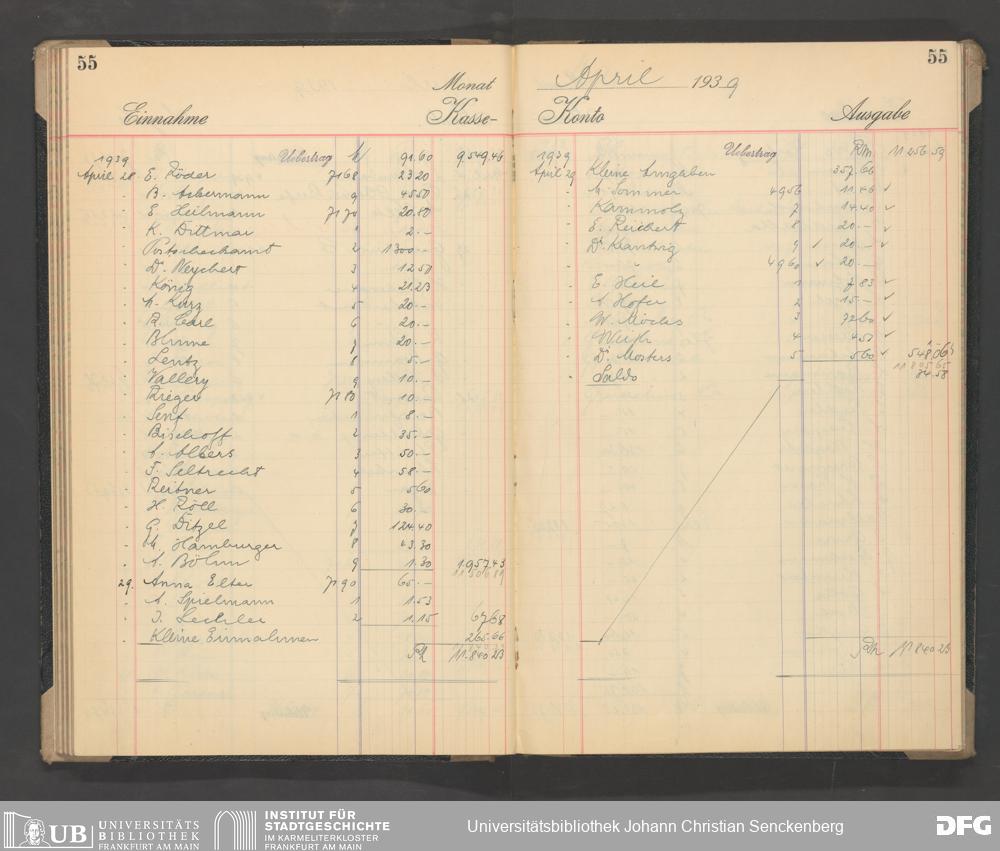 55
Monat
Einnahme
Kasse-
1939
Uebertrag
91.60
9.549.46
April 28.
E. Röder
7168
23.20
B. Ackermann
9
45.50
E. Heilmann
7170
20.80
K. Dittmar
2.–
Postscheckamt
2
1300.–
Dr. Weychert
3
12.50
König
4
21.23
A. Kurz
5
20.–
R. Carl
6
20.–
Blume
7
20.–
Lentz
8
5.–
Vallery
9
10.–
Rieger
7180
10.–
Senf
1
8.–
Bischoff
2
35.–
A. Albers
3
50.–
F. Seltrecht
4
58.–
Reitner
5
5.60
H. Röll
6
30.–
G. Ditzel
7
124.40
M. Hamburger
8
43.30
A. Böhm
9
1.30
1.957.43
29.
Anna Elter
7190
65.–
A. Spielmann
1
1.53
J. Lechler
2
1.15
67.68
Kleine Einnahmen
265.66
RM
11.840.23
55
April 1939
Konto
Ausgabe
1939
Uebertrag
RM
11.256.59
April 29
Kleine Ausgaben
357.66
A. Sommer
4956
11.46 ✓
Kammholz
7
14.40 ✓
E. Reichert
8
20.– ✓
Dr. Krantwig
9 ✓
20.– ✓
4960 ✓
20.–
E. Heil
1
7.83 ✓
A. Hofer
2
15.– ✓
W. Möcks
3
72.60 ✓
Weigh
4
4.51 ✓
Dr. Mosters
5
5.60 ✓
548.06
11 805.65
Saldo
34.58
RM
11 840.23
UB
UNIVERSITÄTS
BIBLIOTHEK
FRANKFURT AM MAIN
INSTITUT FÜR
STADTGESCHICHTE
IM KARMELITERKLOSTER
FRANKFURT AM MAIN
Universitätsbibliothek Johann Christian Senckenberg
DFG